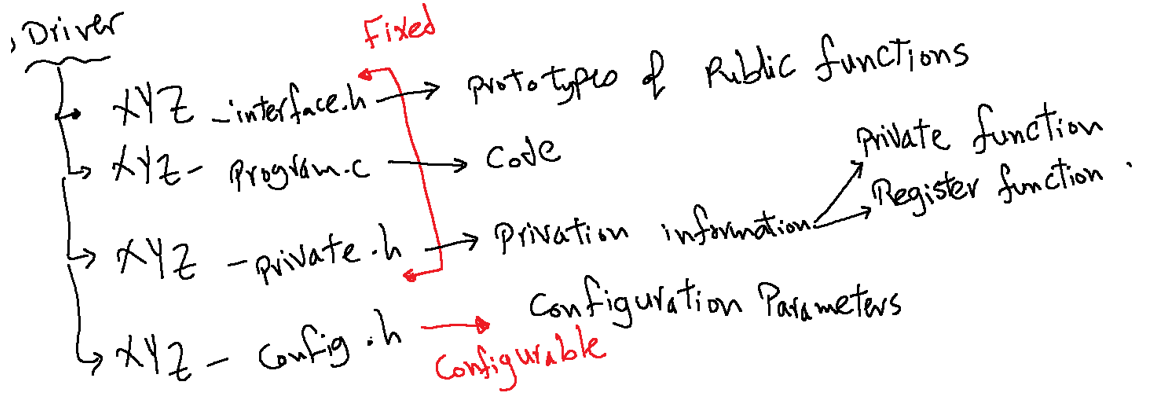 , Driver
Fixed
XYZ_interface.h → prototypes of Public functions
XYZ- program.c → Code
XYZ -private.h → Privation information
Private function
Register function.
XYZ - Config.h → Configuration Parameters
Configurable